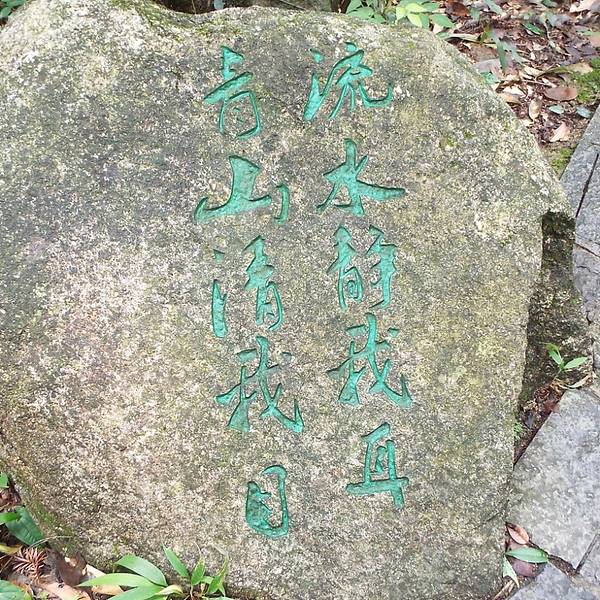 流水静我耳
青山清我目